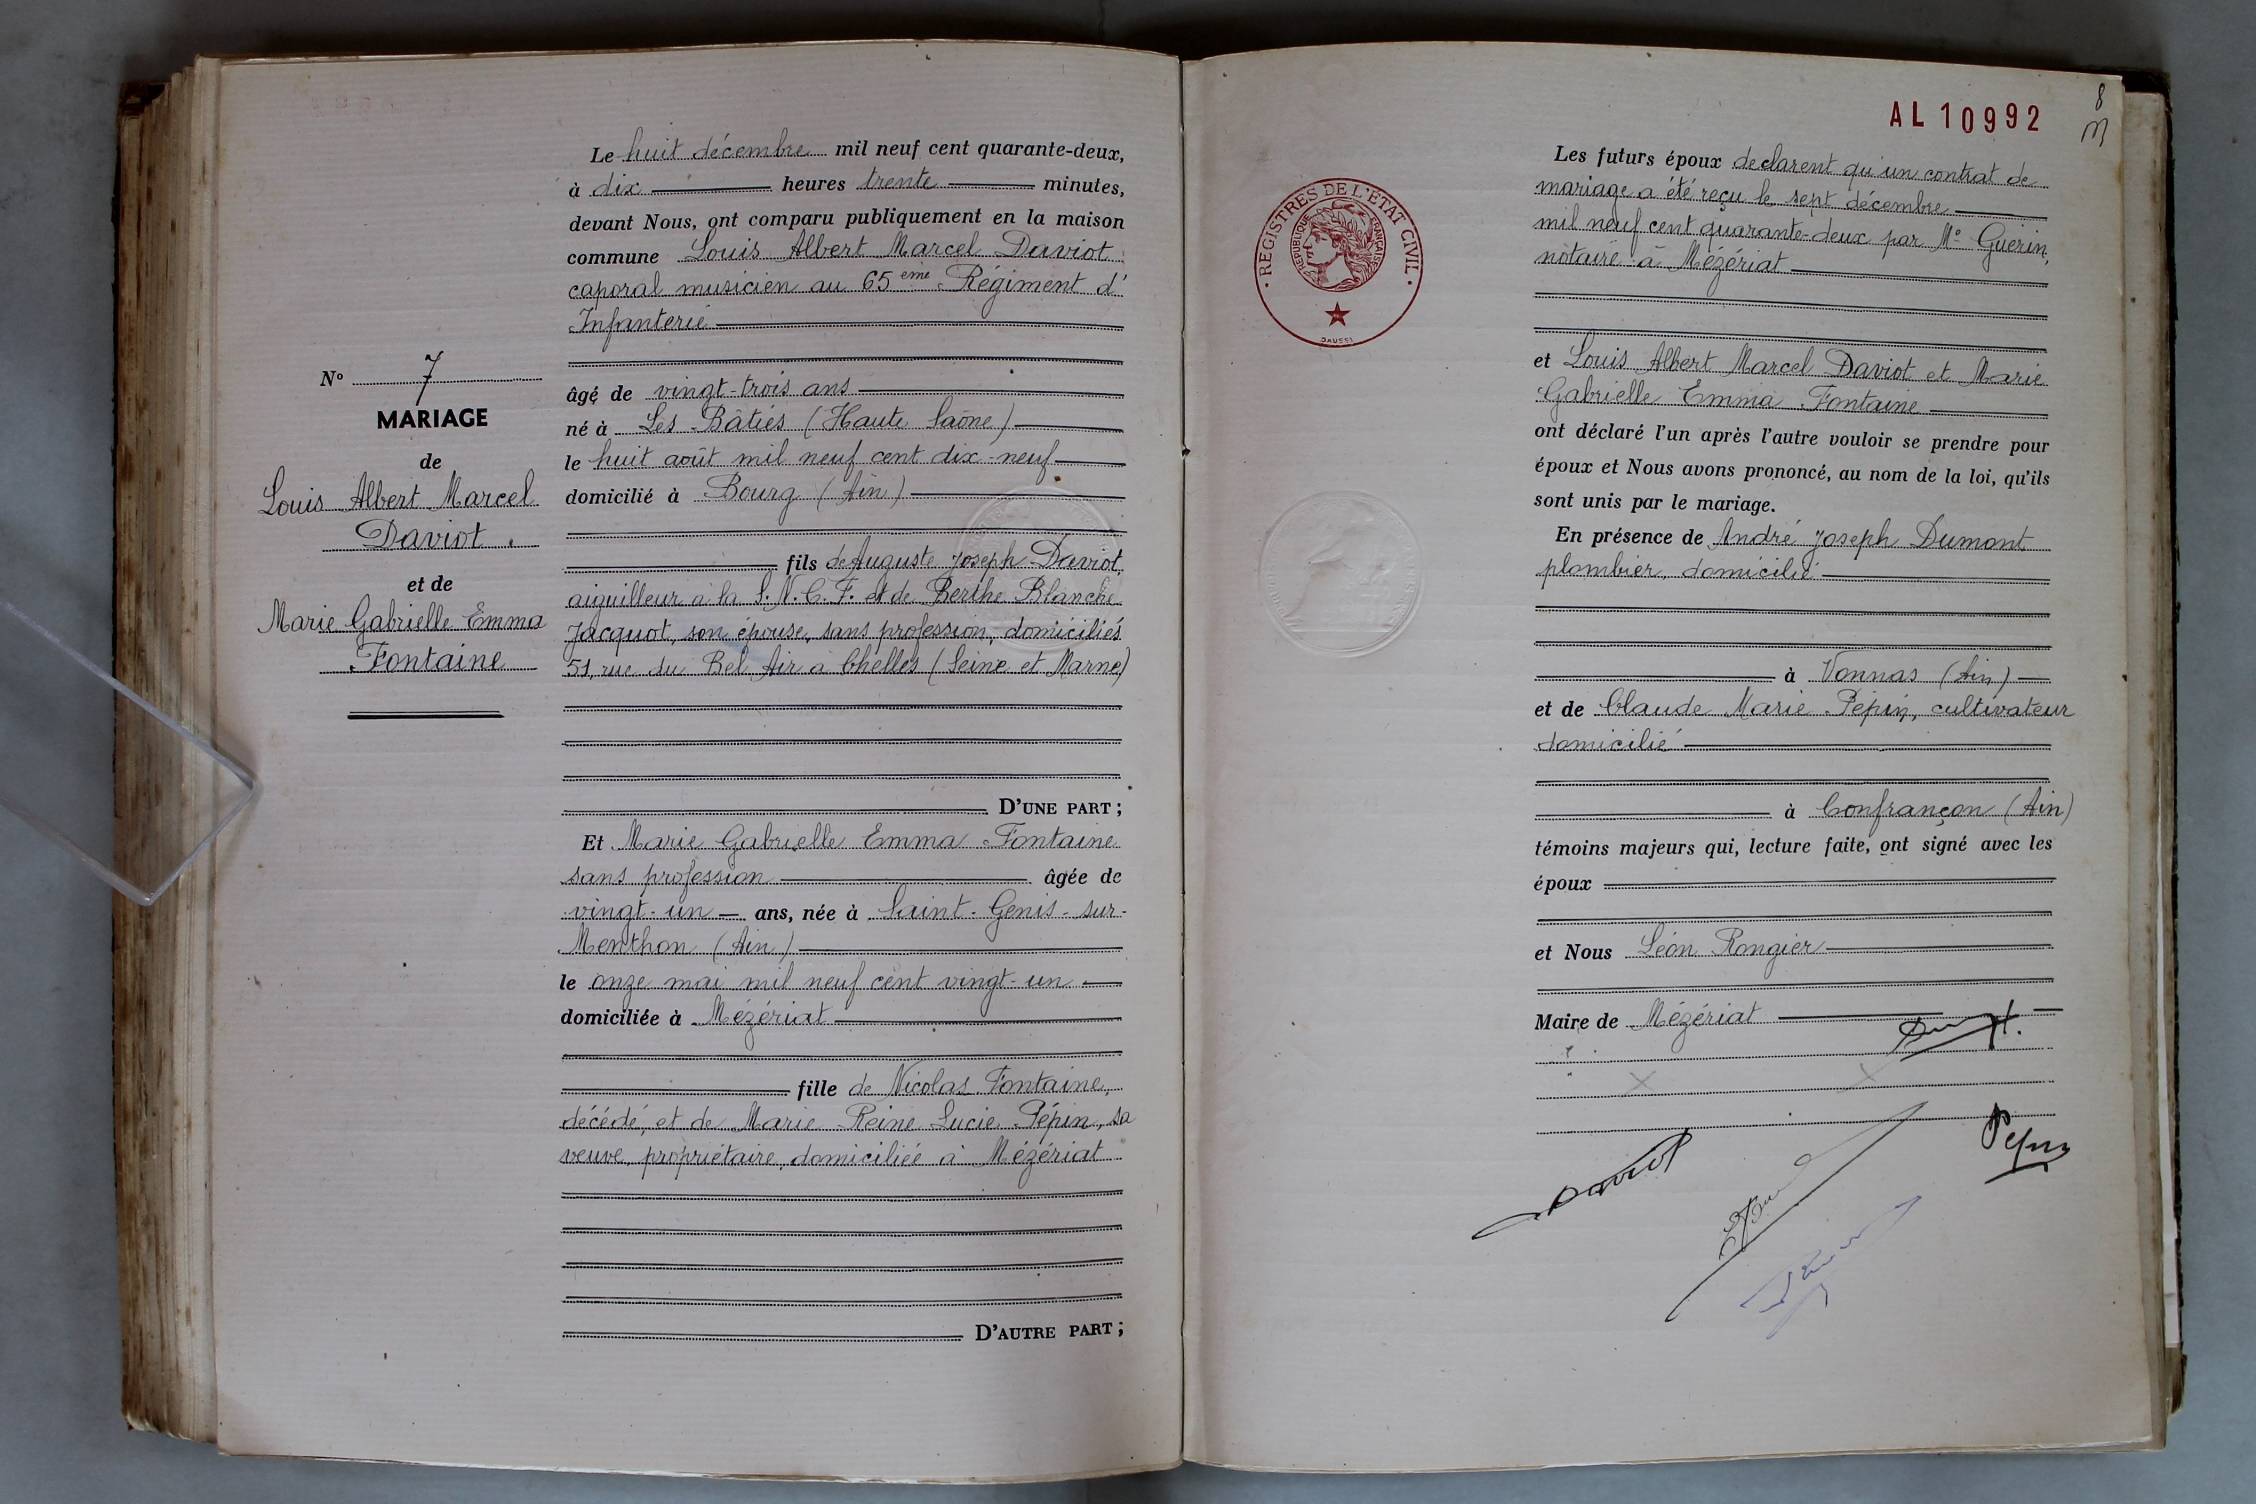 Le huit décembre mil neuf cent quarante-deux,
à dix heures trente minutes,
devant Nous, ont comparu publiquement en la maison
commune Louis Albert Marcel Daviot
caporal musicien au 65 eme Régiment d'
Infanterie
âgé de vingt-trois ans
né à Les Bâties (Haute Saône)
le huit août mil neuf cent dix-neuf
domicilié à Bourg (Ain)
fils de Auguste Joseph Daviot,
aiguilleur à la S.N.C.F. et de Berthe Blanche
Jacquot, son épouse, sans profession, domiciliés
51, rue du Bel Air à Chelles (Seine et Marne)
D'UNE PART ;
Et Marie Gabrielle Emma Fontaine
sans profession âgée de
vingt-un ans, née à Saint-Genis-sur-
Menthon (Ain)
le onze mai mil neuf cent vingt-un
domiciliée à Mézériat
fille de Nicolas Fontaine,
décédé, et de Marie Reine Lucie Pépin, sa
veuve, propriétaire, domiciliée à Mézériat
D'AUTRE PART ;
N° 7
MARIAGE
de
Louis Albert Marcel
Daviot.
et de
Marie Gabrielle Emma
Fontaine
AL 10992
8
REGISTRES DE L'ÉTAT CIVIL
RÉPUBLIQUE FRANÇAISE
Les futurs époux declarent qu'un contrat de
mariage a été reçu le sept décembre
mil neuf cent quarante-deux par Me Guérin,
notaire à Mézériat
et Louis Albert Marcel Daviot et Marie
Gabrielle Emma Fontaine
ont déclaré l'un après l'autre vouloir se prendre pour
époux et Nous avons prononcé, au nom de la loi, qu'ils
sont unis par le mariage.
En présence de André Joseph Dumont
plombier, domicilié
à Vonnas (Ain)
et de Claude Marie Pépin, cultivateur
domicilié
à Confrançon (Ain)
témoins majeurs qui, lecture faite, ont signé avec les
époux
et Nous Léon Rongier
Maire de Mézériat
Daviot
Pepin